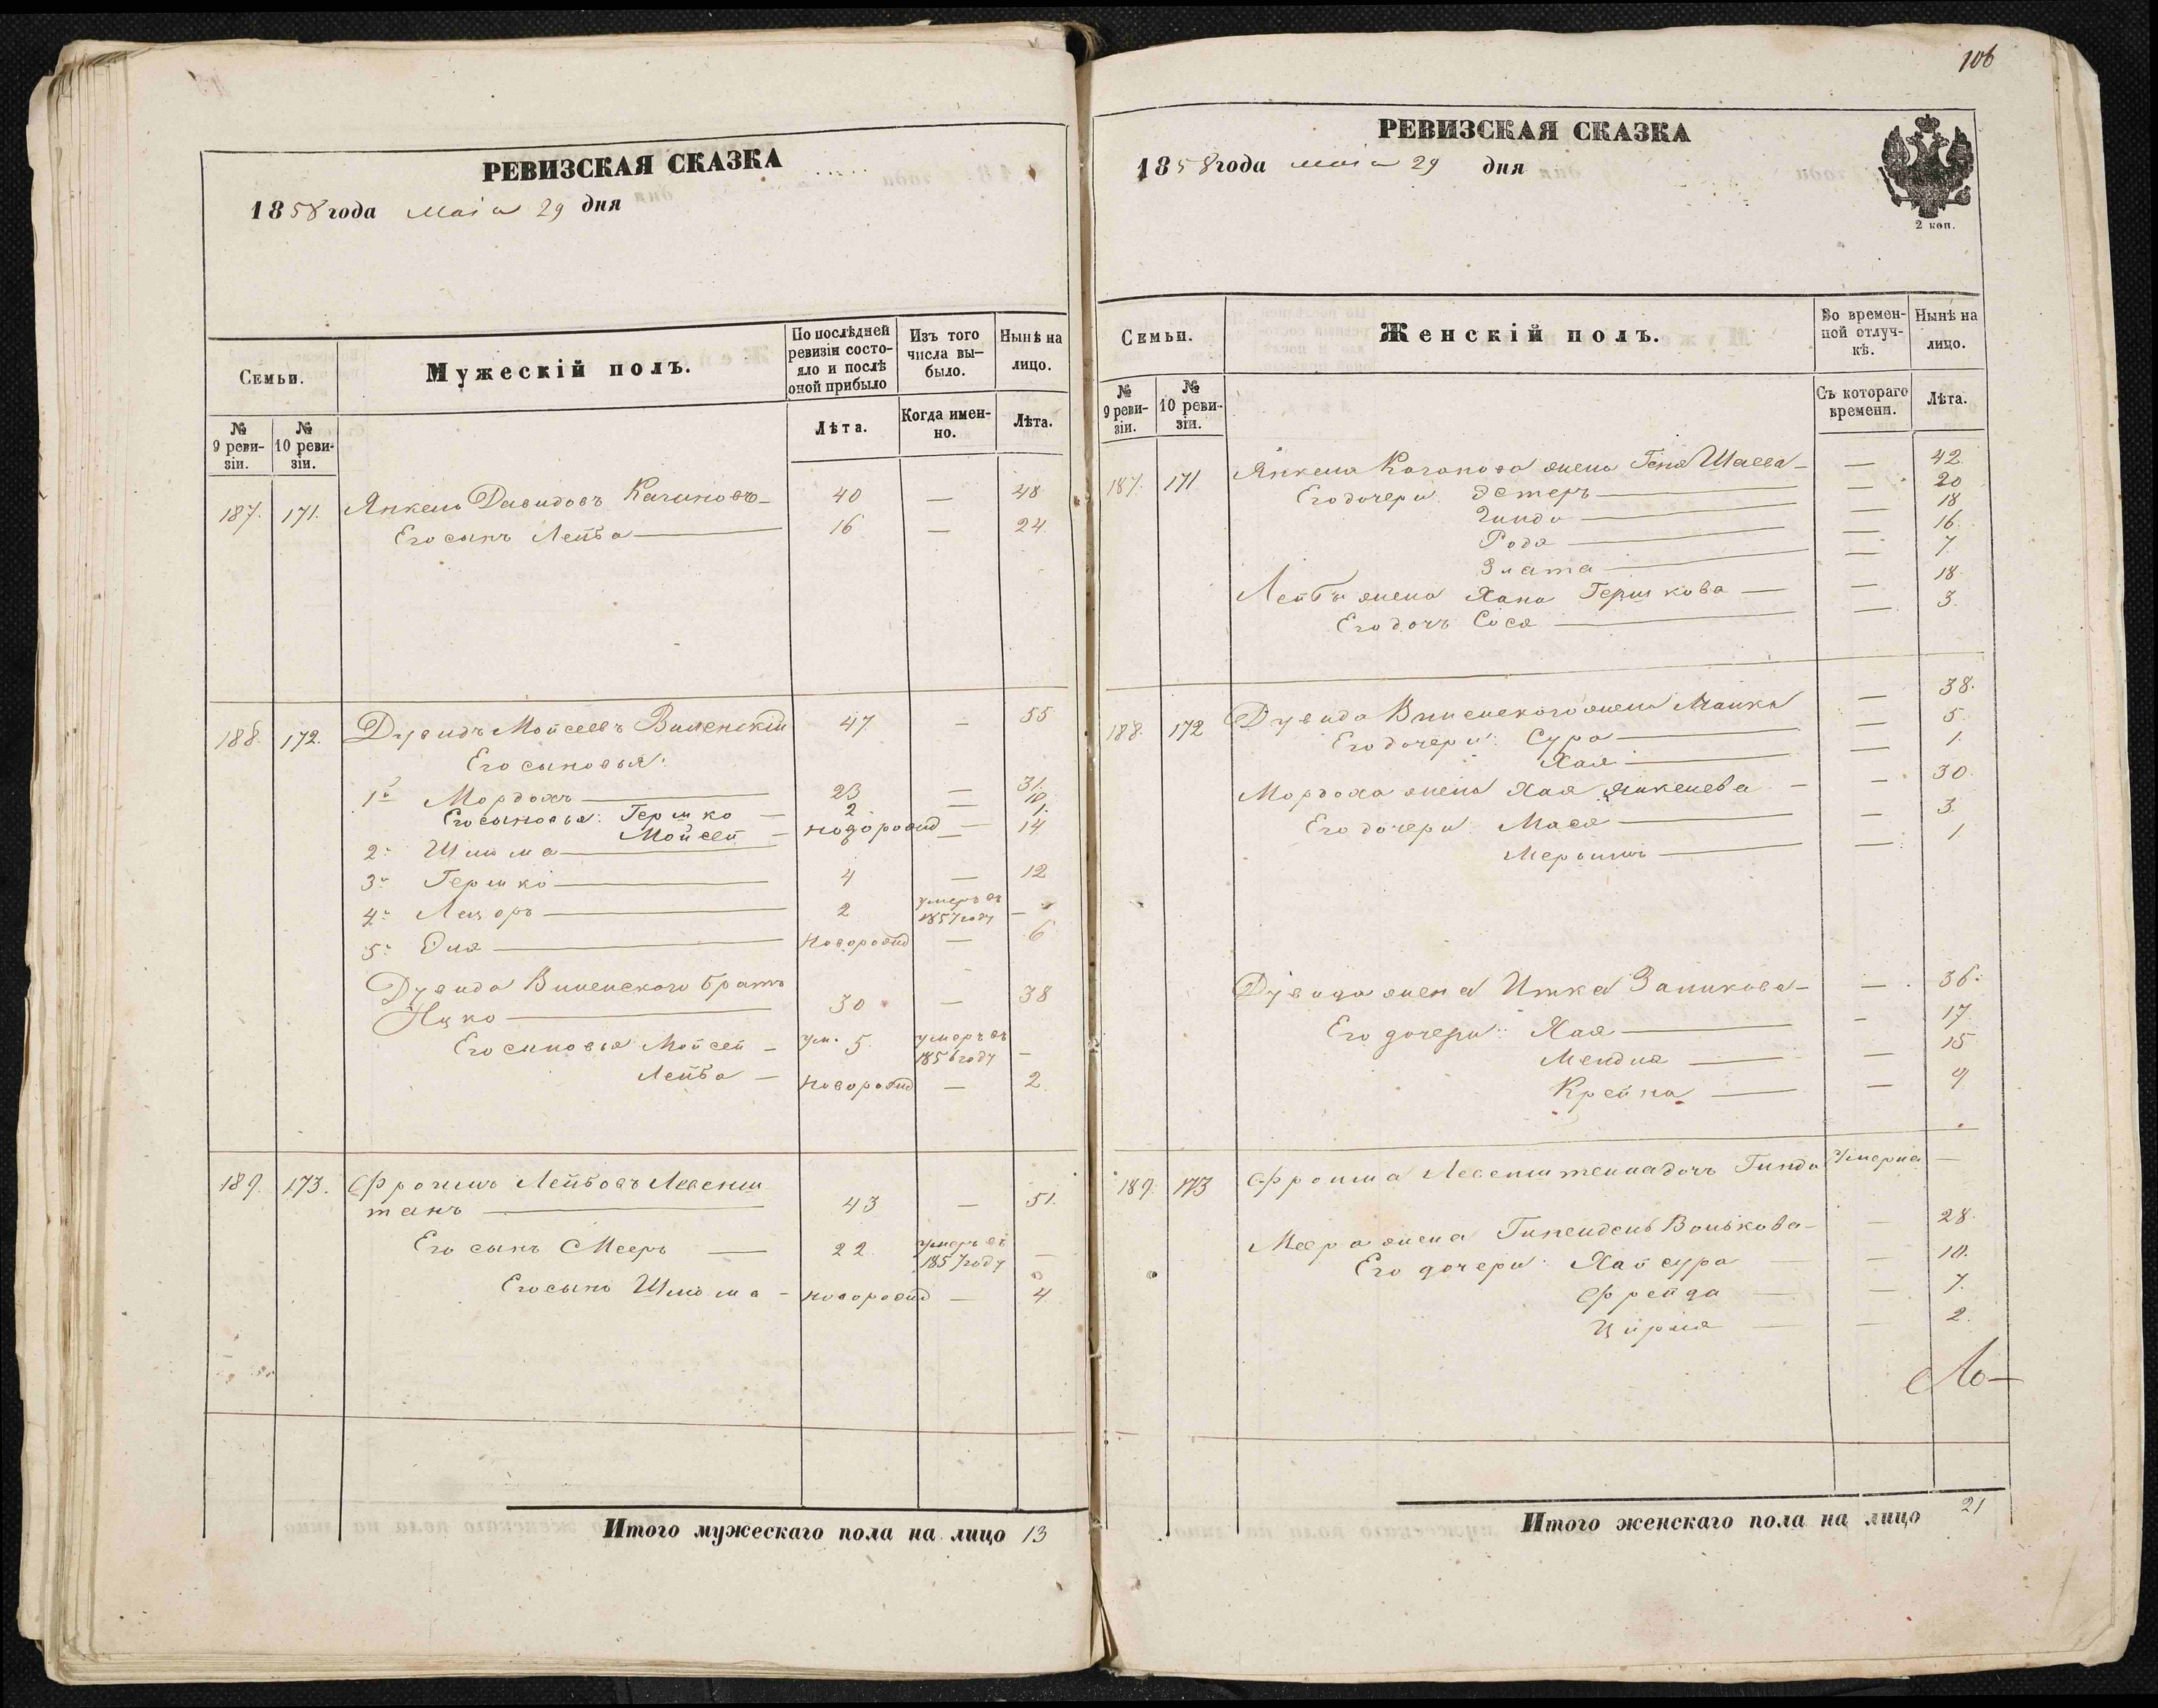 106
РЕВИЗСКАЯ СКАЗКА
1858 года Маiя 29 дня
Семьи.
Мужескій полъ.
По послѣдней ревизіи состо-яло и послѣ оной прибыло
Изъ того числа вы-было.
Нынѣ на лицо.
№ 9 реви-зіи.
№ 10 реви-зіи.
Лѣта.
Когда имен-но.
Лѣта.
187. 171. Янкель Давидовъ Кагановъ 40 — 48
Его сынъ Лейба 16 — 24.
188. 172. Дувидъ Мойсеевъ Виленскій 47 — 55
Его сыновья:
1й Мордохъ 23 — 31.
Его сыновья: Гершко 2 — 10
Мойсей — новорожд — 1.
2й Шлюма 14
3й Гершко 4 — 12
4й Лейзоръ 2 умеръ въ 1857 году —
5й Эля новорожд — 6
Дувида Виленскаго братъ
Ицко 30 — 38
Его сыновья Мойсей — ум. 5. умеръ въ 1856 году —
Лейба — новорожд — 2.
189. 173. Фроимъ Лейбовъ Левенш
танъ 43 — 51.
Его сынъ Мееръ — 22 умеръ въ 1857 году —
Его сынъ Шлюма — новорожд — 4
Итого мужескаго пола на лицо 13
РЕВИЗСКАЯ СКАЗКА
1858 года маiя 29 дня
2 коп.
Семьи.
Женскій полъ.
Во времен-ной отлуч-кѣ.
Нынѣ на лицо.
№ 9 реви-зіи.
№ 10 реви-зіи.
Съ котораго времени.
Лѣта.
187. 171 Янкеля Каганова жена Геня Шаева — — 42.
Его дочери: Эстеръ — 20
Гинда — 18
Рода — 16.
Злата — 7.
Лейбы жена Хана Гершкова — — 18.
Его дочь Сося — 3.
188. 172 Дувида Виленскаго жена Малка — 38.
Его дочери: Сура — 5.
Хая — 1.
Мордоха жена Хая Янкелева — — 30.
Его дочери: Мася — 3.
— 1
Дувида жена Итка Заликова — — 36.
Его дочери: Хая — 17.
Мендля — 15
Крейна — 9
189. 173 Фроима Левенштейна дочь Гинда Умерла —
Меера жена Волькова — — 28.
Его дочери: Хай сура — 10.
Фрейда — 7.
Цирля — 2.
Итого женскаго пола на лицо 21